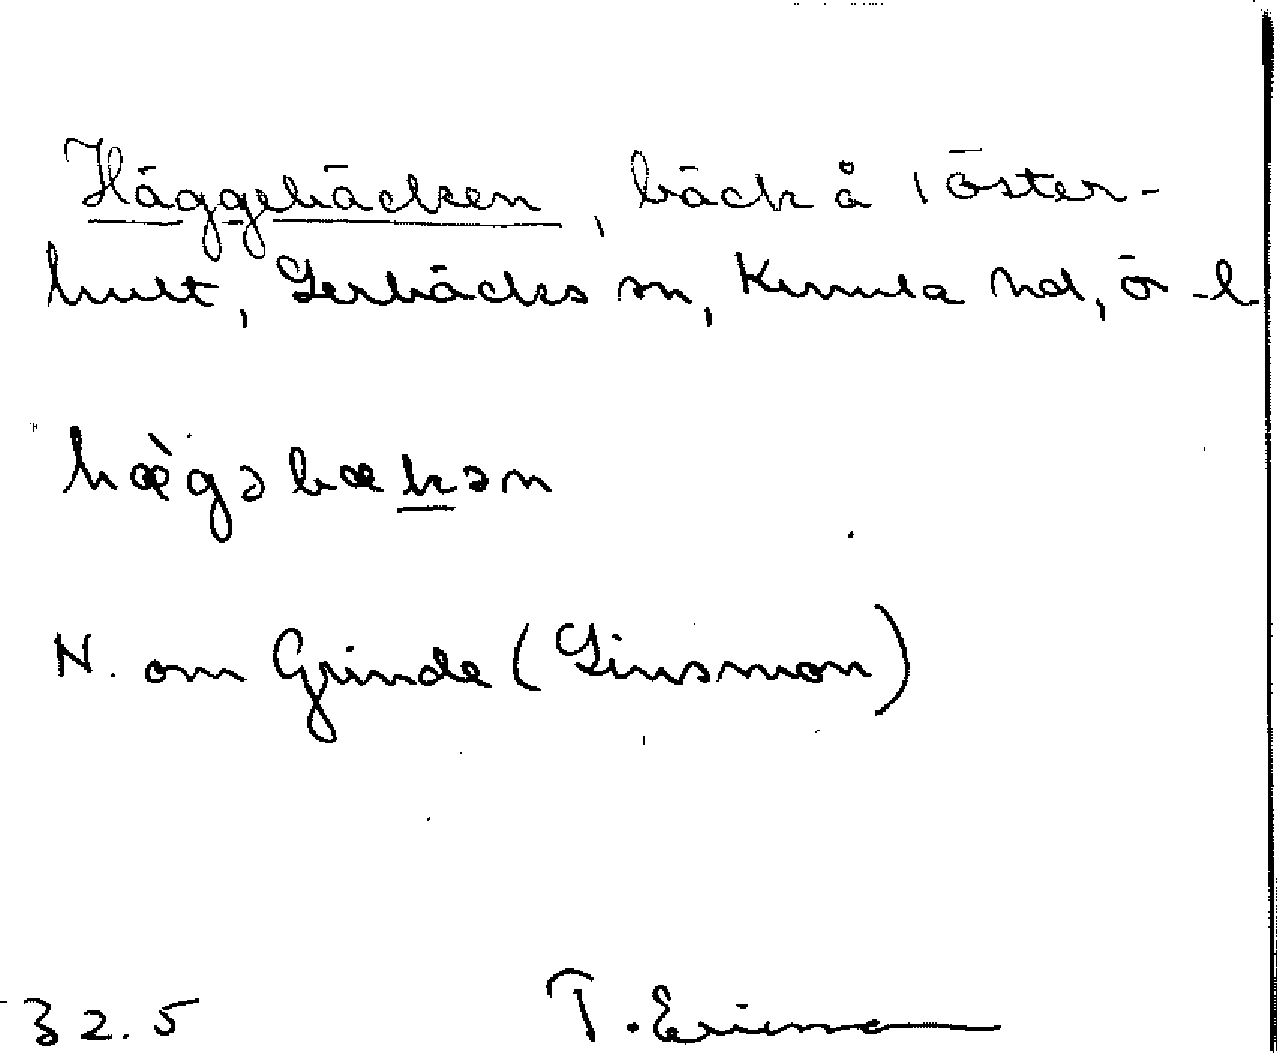 Häggebäcken, bäck å Töster-
hult, Lerbäcks sn, Kumla hd, ör l
hæ̀gəbækən
N. om Grinde (Linsmon)
32.5 T. Ericma